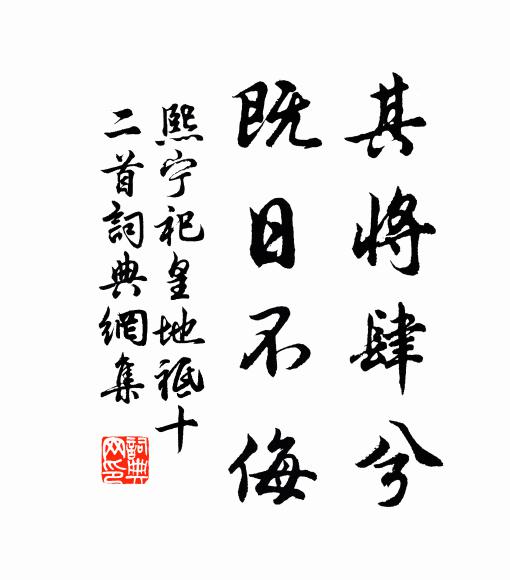 其將肆兮
既日不侮
熙宁祀皇地祇十
二首詞典網集
詞典
网印